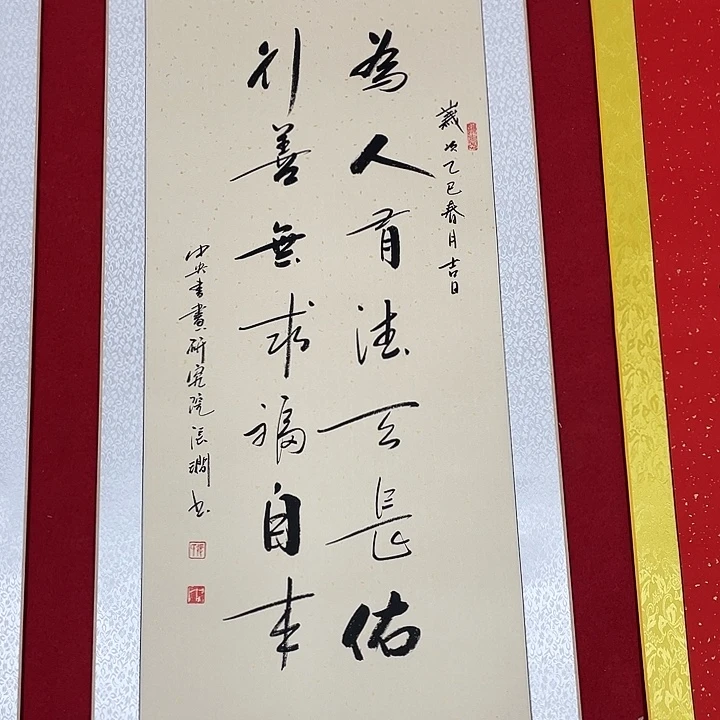 歲次乙巳春月吉日
為人有德天長佑
行善無求福自来
中央書畫研究院張潤书